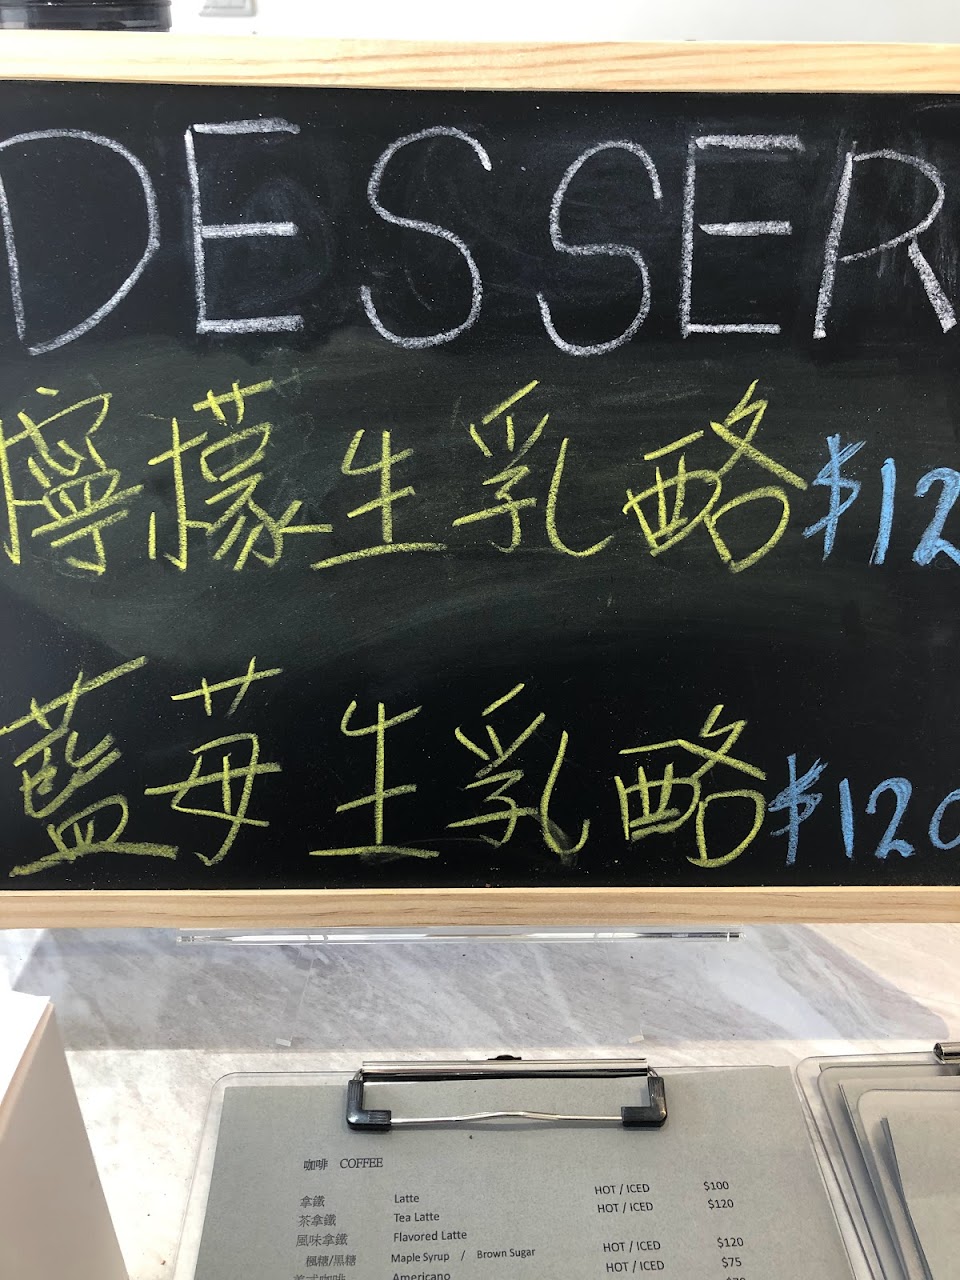 DESSER
檸檬生乳酪 $12
藍莓生乳酪 $120
咖啡 COFFEE
拿鐵 Latte HOT / ICED $100
茶拿鐵 Tea Latte HOT / ICED $120
風味拿鐵 Flavored Latte
楓糖/黑糖 Maple Syrup / Brown Sugar HOT / ICED $120
美式咖啡 Americano HOT / ICED $75